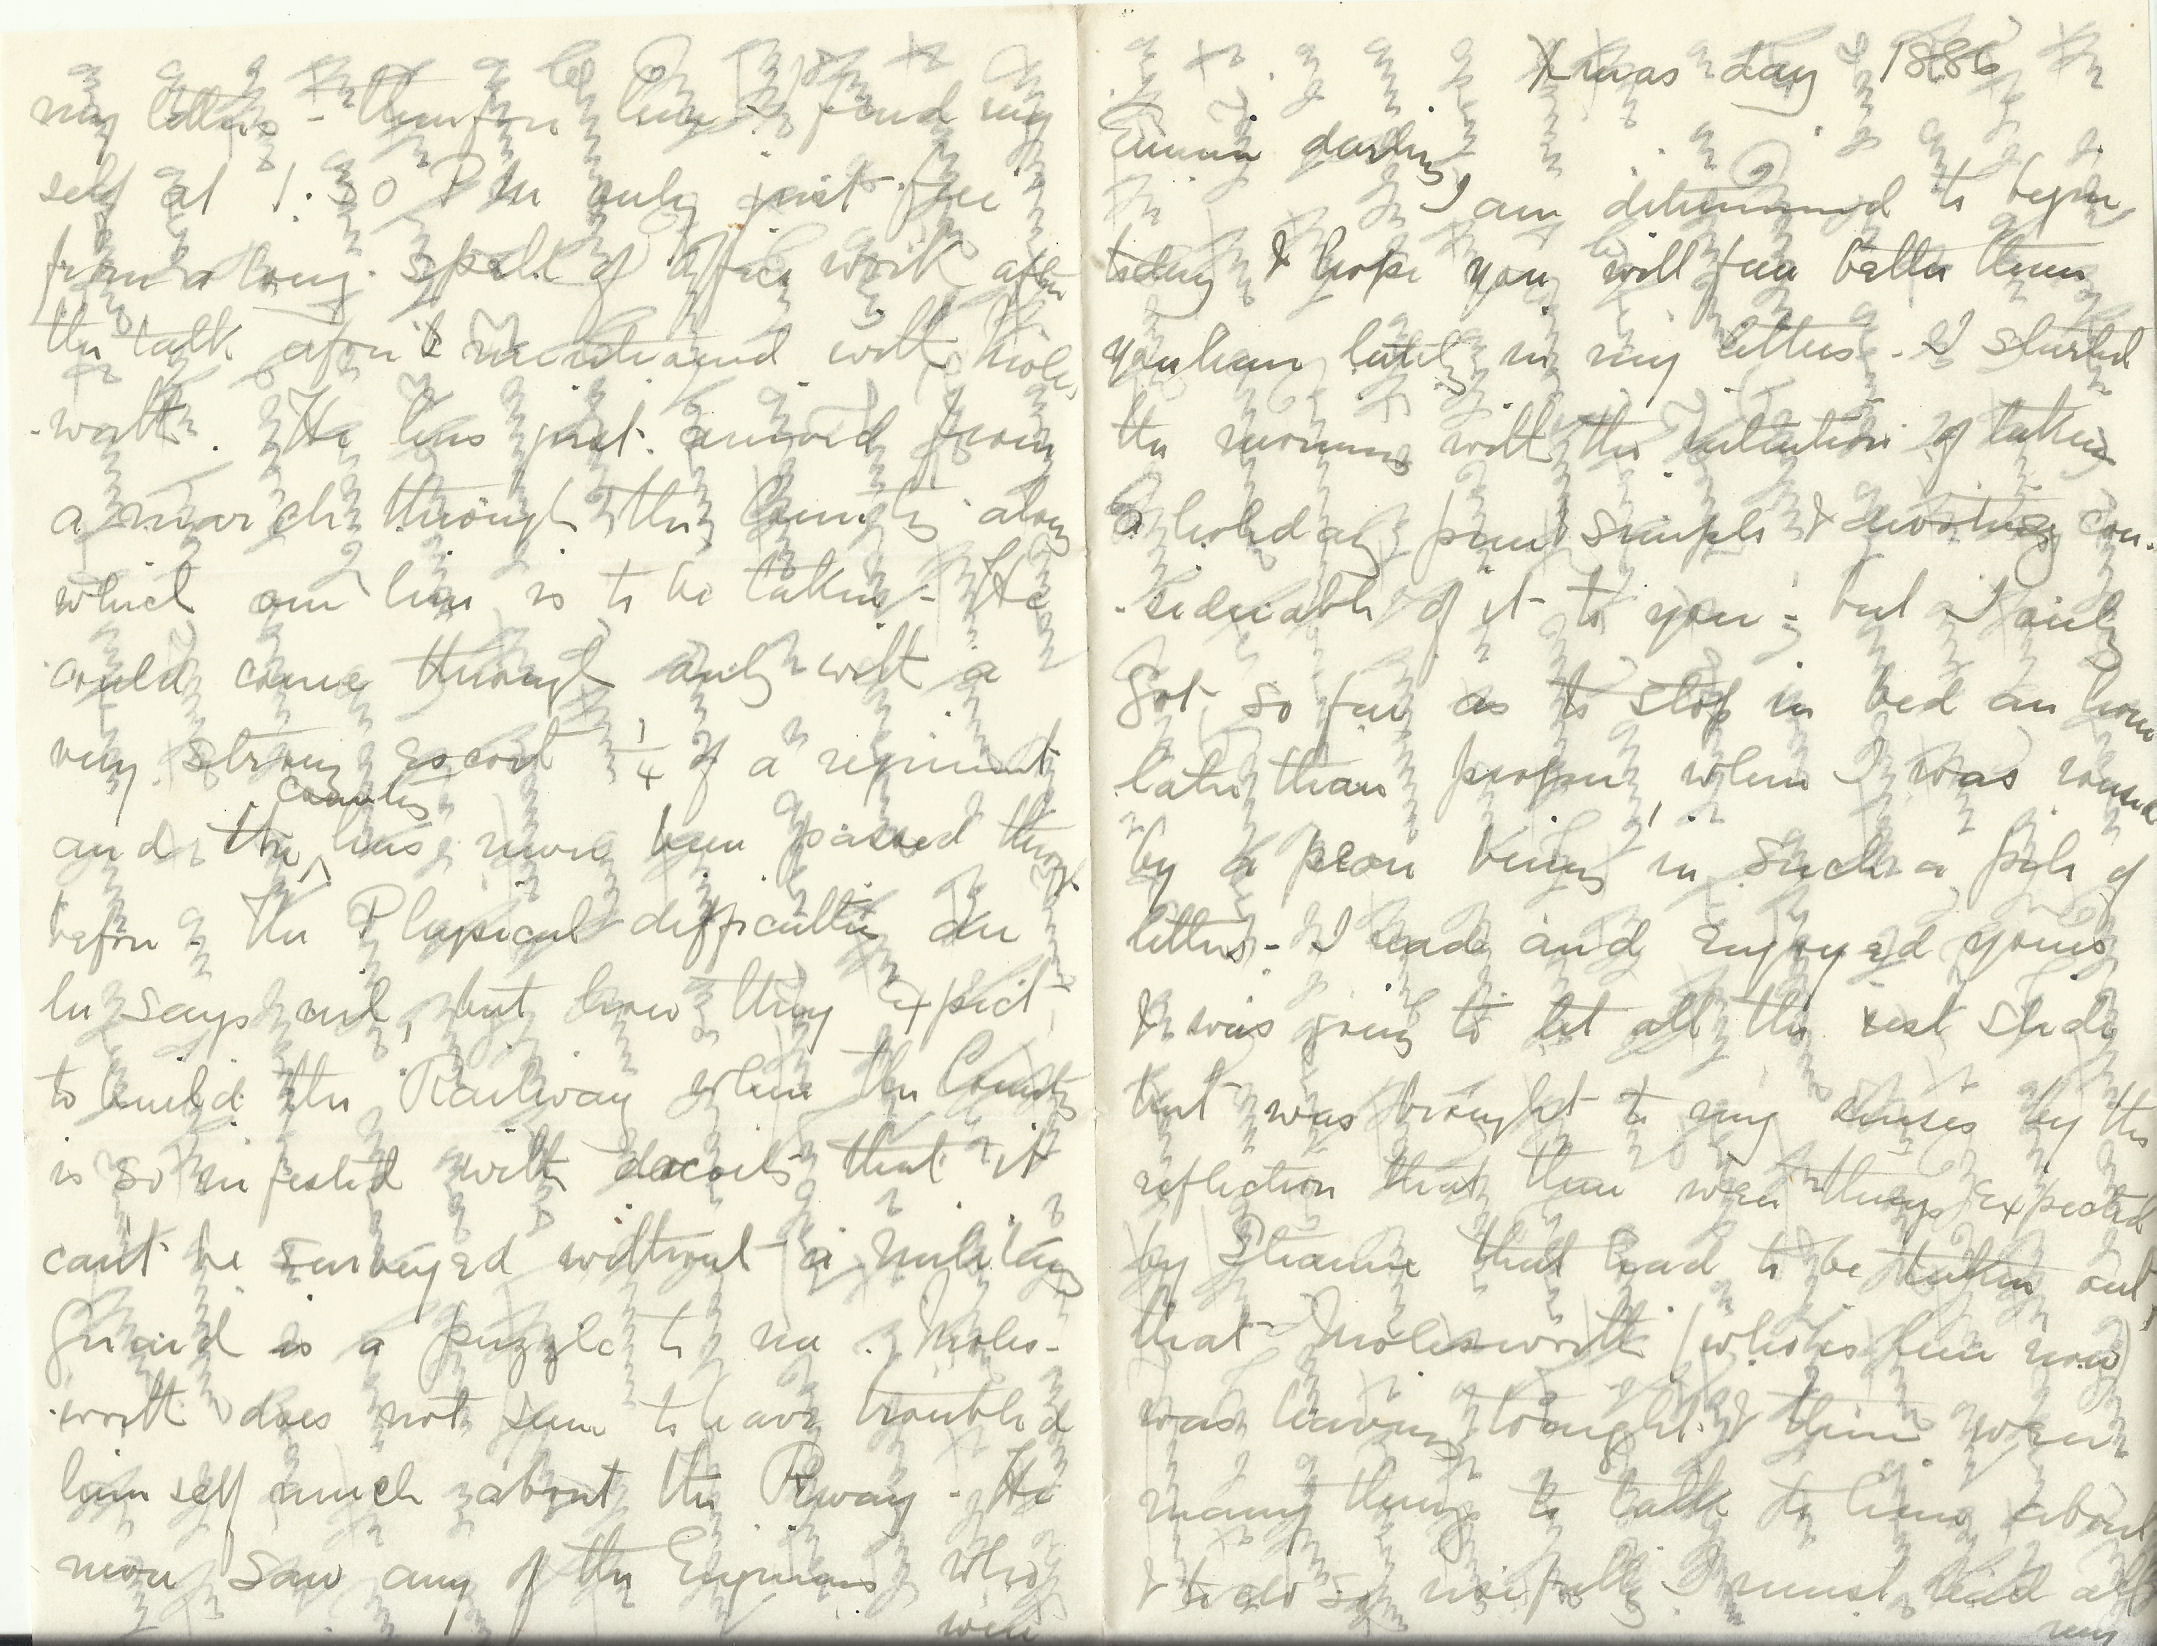 Xmas day 1886
darling
I am determined to begin
today & hope you will fare better than
you have lately in my letters - I started
the morning with the intention of taking
a holiday pure & simple & devoting con-
-siderable of it to you - but I only
got so far as to stop in bed an hour
later than proper, when I was roused
by a peon bring in such a pile of
letters - I read and enjoyed yours
& was going to let all the rest slide
but was brought to my senses by the
reflection that there were things expected
by that had to be taken out,
that Molesworth (who is here now)
was leaving tonight & there were
many things to talk to him about
& to do so usefully I must read all
my
my letters - therefore here I find my
self at 1.30 PM only just free
from a long spell of office work after
the talk afore mentioned with Moles
-worth. He has just arrived from
a march through the Country along
which our line is to be taken - He
could come through only with a
very strong escort 1/4 of a regiment
and the country has never been passed through
before - The Physical difficulties are
he says nil, but how they expect
to build the Railway when the Country
is so infested with dacoits that it
can't be surveyed without a military
guard is a puzzle to me. Moles-
-worth does not seem to have troubled
himself much about the Rway - He
never saw any of the Engineers who
were